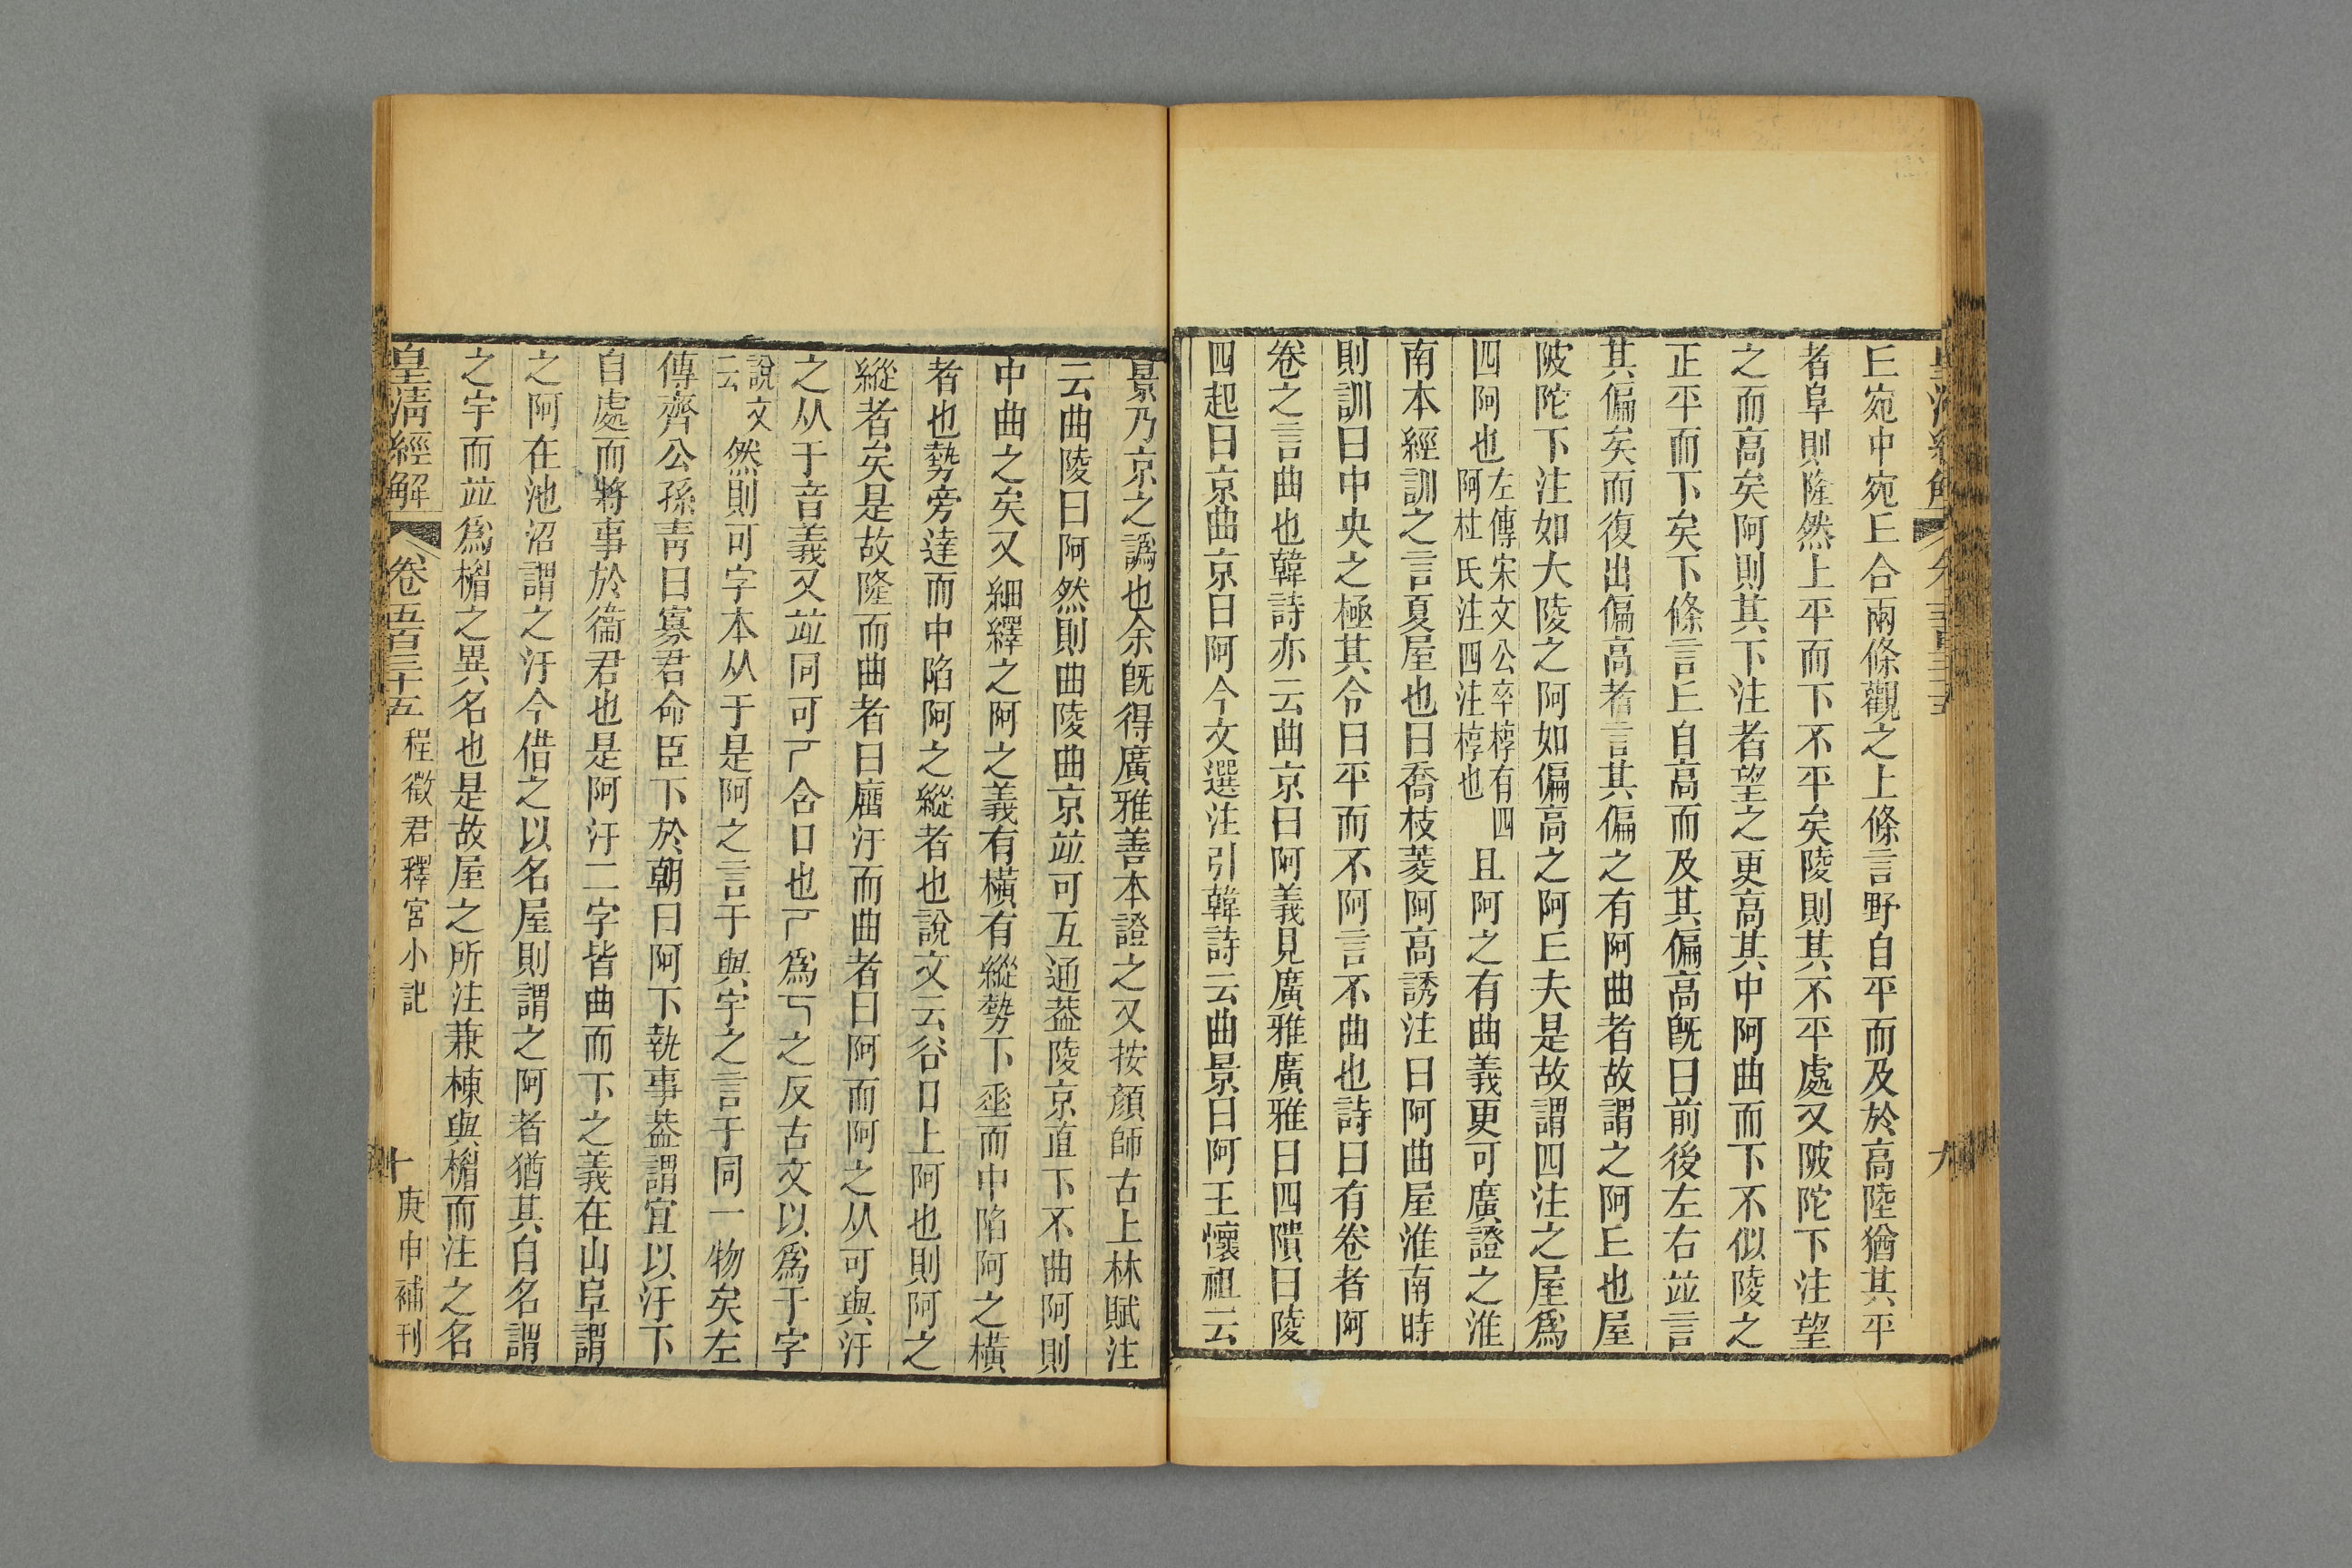 𠀉宛中宛𠀉合兩條觀之上條言野自平而及於高陸猶其平
者阜則隆然上平而下不平矣陵則其不平處又陂陀下注望
之而高矣阿則其下注者望之更高其中阿曲而下不似陵之
正平而下矣下條言𠀉自高而及其偏高旣曰前後左右並言
其偏矣而復出偏高者言其偏之有阿曲者故謂之阿𠀉也屋
陂陀下注如大陵之阿如偏高之阿𠀉夫是故謂四注之屋爲
四阿也左傳宋文公卒椁有四阿杜氏注四注椁也且阿之有曲義更可廣證之淮
南本經訓之言夏屋也曰喬枝菱阿高誘注曰阿曲屋淮南時
則訓曰中央之極其令曰平而不阿言不曲也詩曰有卷者阿
卷之言曲也韓詩亦云曲京曰阿義見廣雅廣雅曰四隤曰陵
四起曰京曲京曰阿今文選注引韓詩云曲景曰阿王懷祖云
景乃京之譌也余旣得廣雅善本證之又按顏師古上林賦注
云曲陵曰阿然則曲陵曲京並可互通葢陵京直下不曲阿則
中曲之矣又細繹之阿之義有橫有縱勢下埀而中陷阿之橫
者也勢旁達而中陷阿之縱者也說文云谷口上阿也則阿之
縱者矣是故隆而曲者曰㢓汙而曲者曰阿而阿之从可與汙
之从于音義又並同可𠀀含口也𠀀爲丂之反古文以爲于字
說文云然則可字本从于是阿之言于與宇之言于同一物矣左
傳齊公孫靑曰寡君命臣下於朝曰阿下執事葢謂宜以汙下
自處而將事於衞君也是阿汙二字皆曲而下之義在山阜謂
之阿在池沼謂之汙今借之以名屋則謂之阿者猶其自名謂
之宇而並爲楣之異名也是故屋之所注兼棟與楣而注之名
皇淸經解 卷五百三十五 程徵君釋宮小記 十 庚申補刊